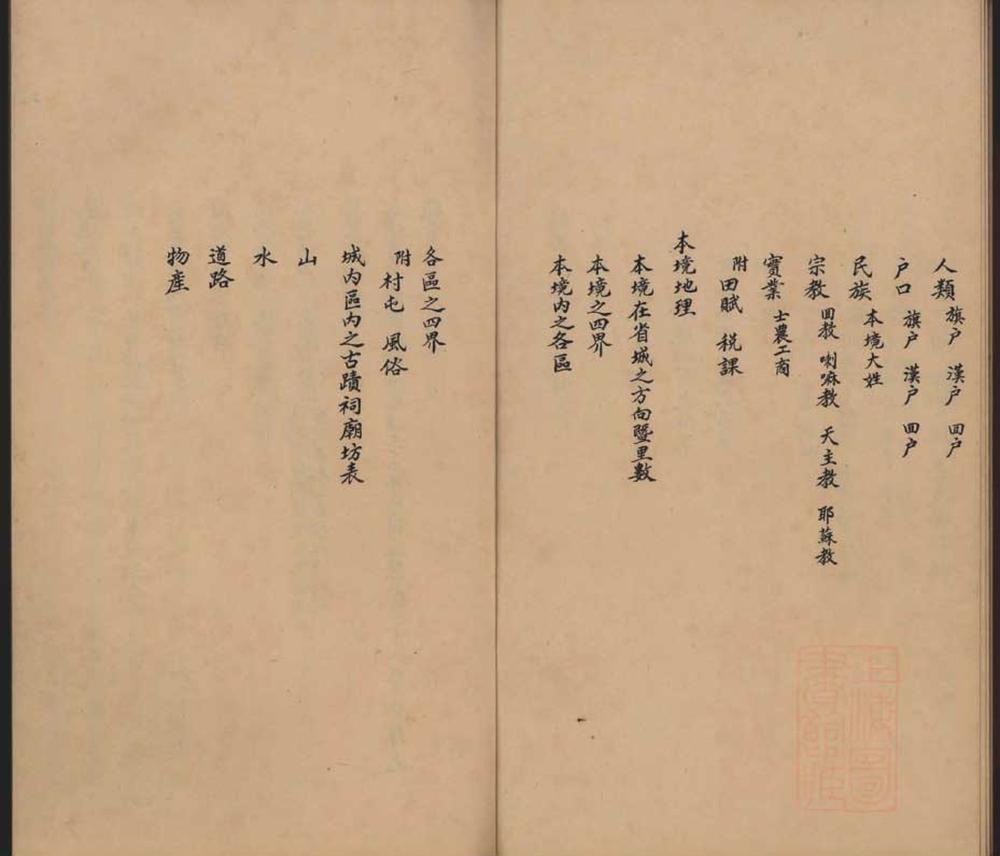 人類 旗户 漢户 回户
户口 旗户 漢户 回户
民族 本境大姓
宗教 回教 喇嘛教 天主教 耶蘇教
實業 士農工商
附田賦 税課
本境地理
本境在省城之方向暨里數
本境之四界
本境内之各區
各區之四界
附村屯 風俗
城内區内之古蹟祠廟坊表
山
水
道路
物產
上海圖書館藏